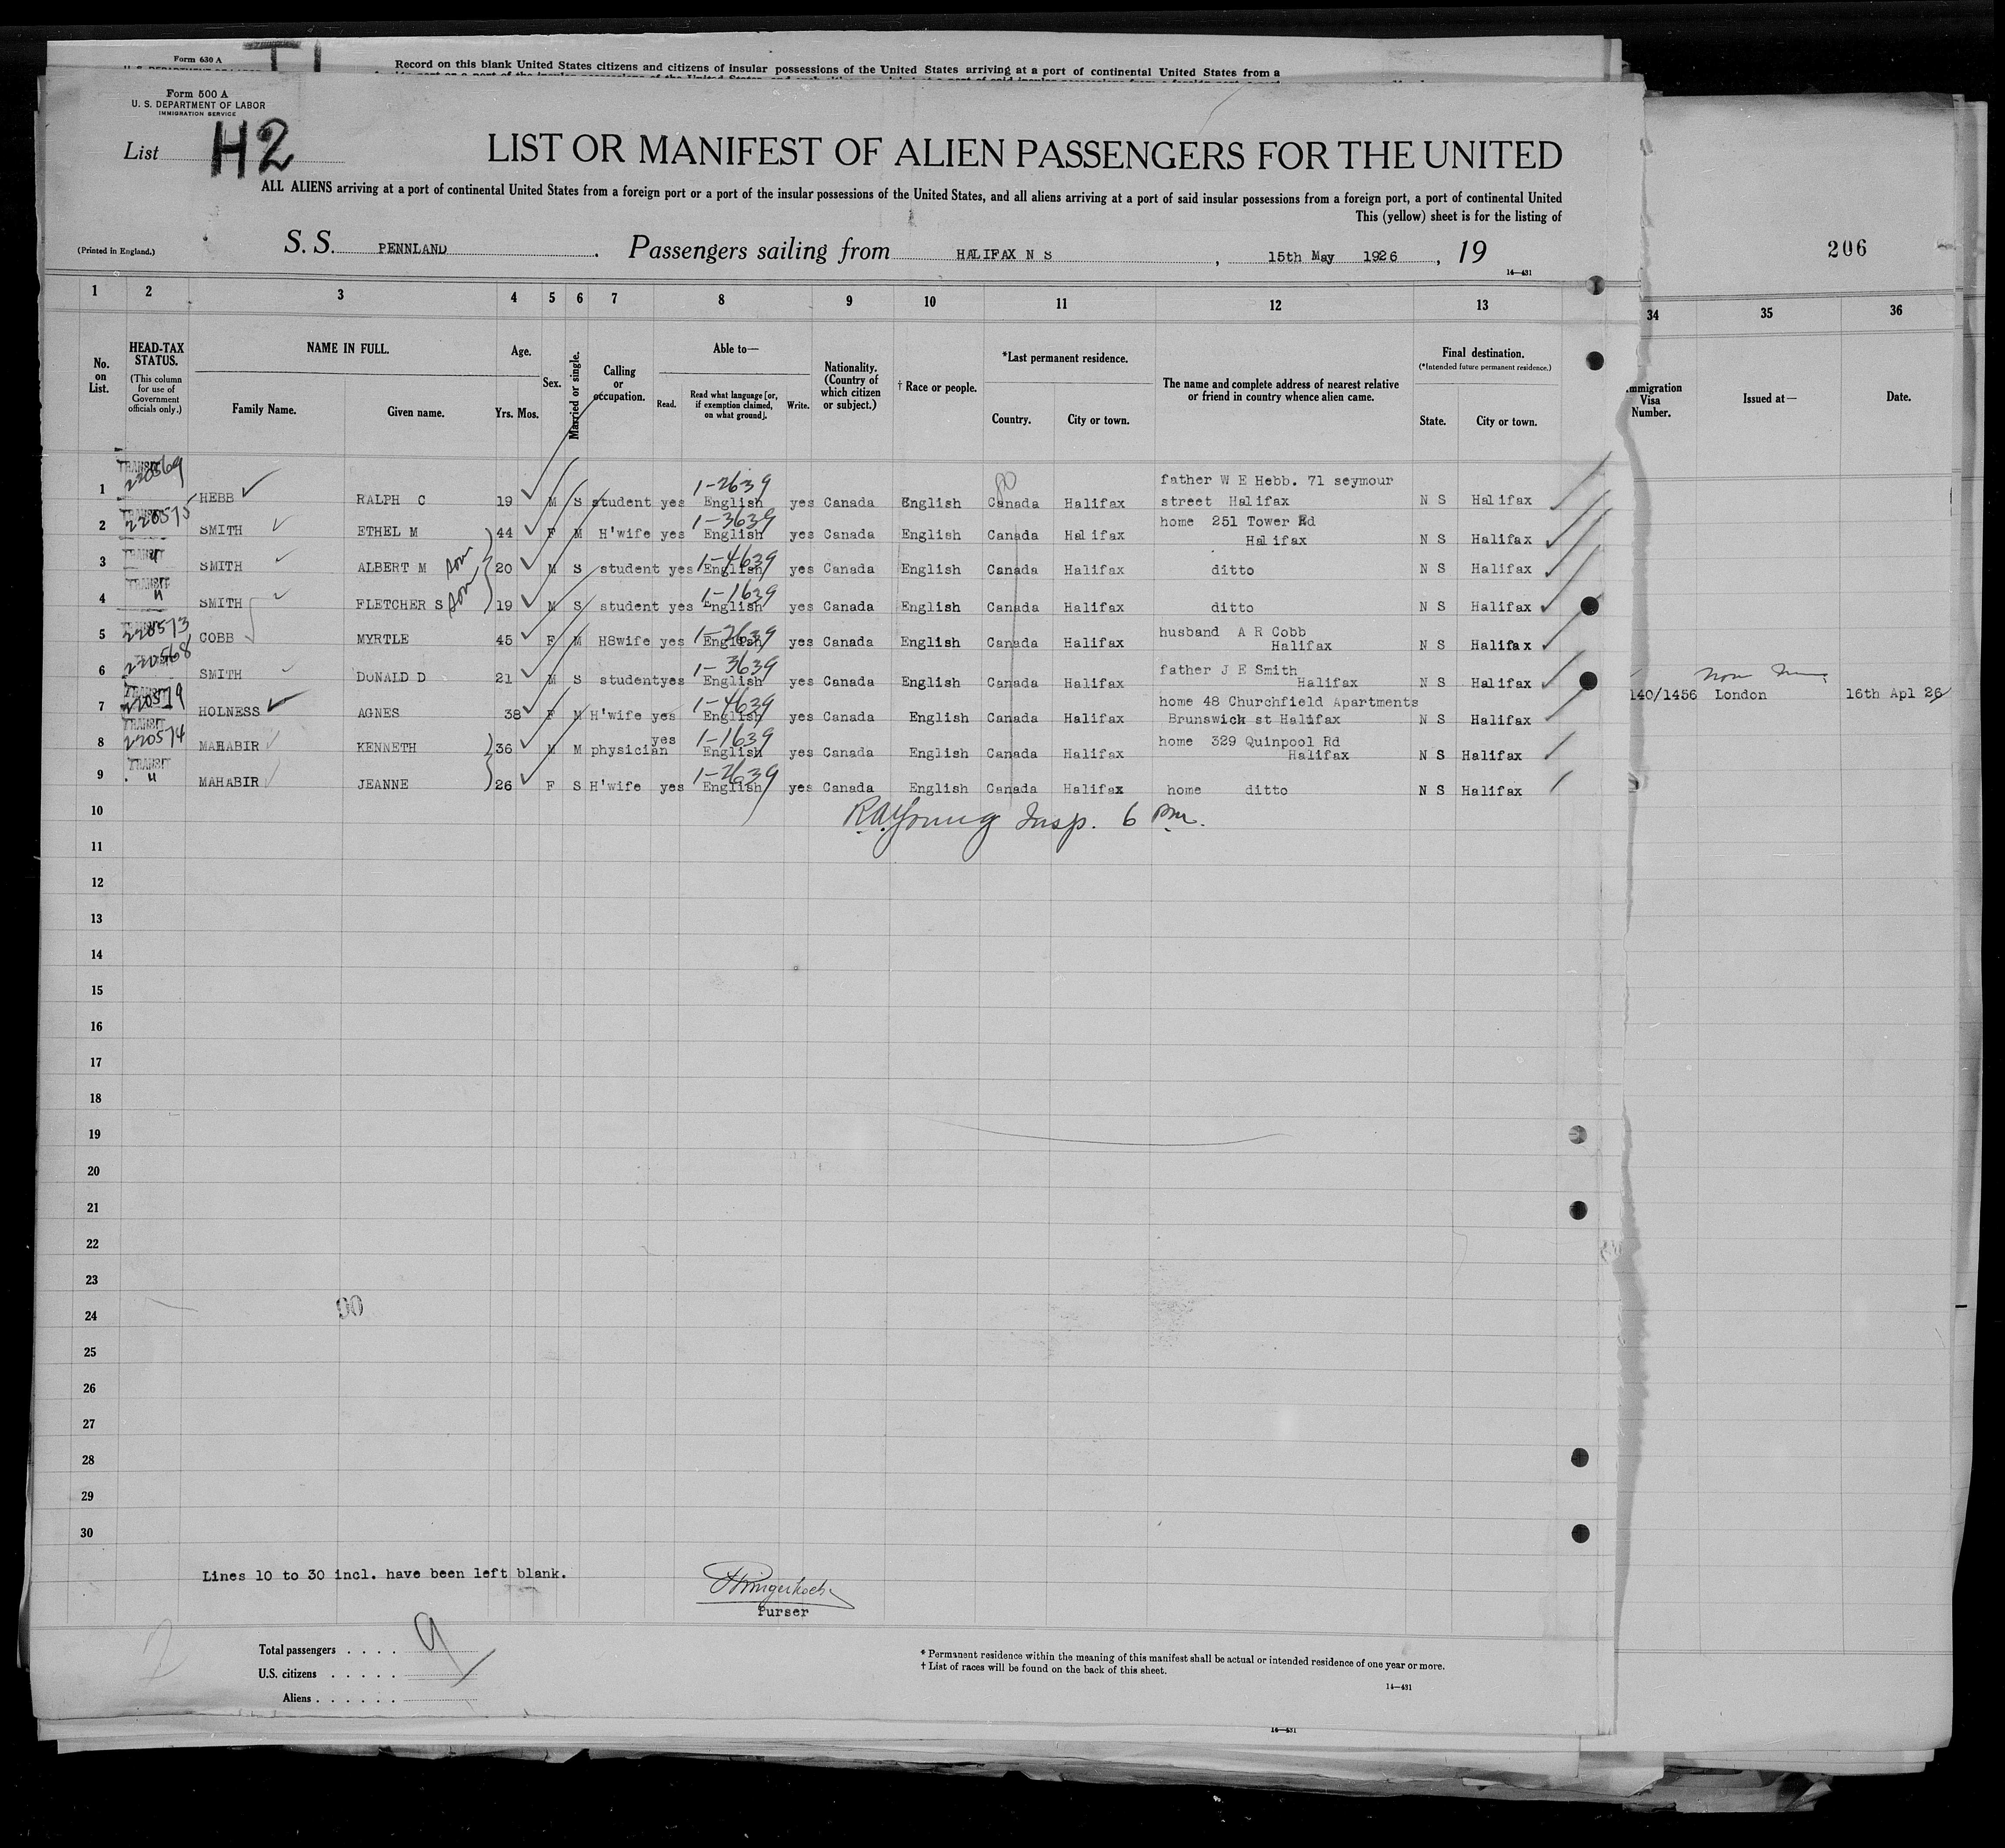 Form 630 A
Record on this blank United States citizens and citizens of insular possessions of the United States arriving at a port of continental United States from a
Form 500 A
U. S. DEPARTMENT OF LABOR
IMMIGRATION SERVICE
List H2
LIST OR MANIFEST OF ALIEN PASSENGERS FOR THE UNITED
ALL ALIENS arriving at a port of continental United States from a foreign port or a part of the insular possessions of the United States, and all aliens arriving at a port of said insular possessions from a foreign port, a port of continental United
This (yellow) sheet is for the listing of
(Printed in England.)
S. S. PENNLAND. Passengers sailing from HALIFAX N S, 15th May 1926, 19
14—431
206
1 2 3 4 5 6 7 8 9 10 11 12 13 34 35 36
No. on List.
HEAD-TAX STATUS.
(This column for use of Government officials only.)
NAME IN FULL.
Family Name. Given name.
Age.
Yrs. Mos.
Sex.
Married or single.
Calling or occupation.
Able to—
Read. Read what language [or, if exemption claimed, on what ground]. Write.
Nationality. (Country of which citizen or subject.)
† Race or people.
*Last permanent residence.
Country. City or town.
The name and complete address of nearest relative or friend in country whence alien came.
Final destination.
(*Intended future permanent residence.)
State. City or town.
Immigration Visa Number.
Issued at—
Date.
1 TRANSIT 220569 HEBB RALPH C 19 M S student yes 1-2639 English yes Canada English Canada Halifax father W E Hebb. 71 seymour street Halifax N S Halifax
2 TRANSIT 220575 SMITH ETHEL M 44 F M H'wife yes 1-3639 English yes Canada English Canada Halifax home 251 Tower Rd Halifax N S Halifax
3 TRANSIT " SMITH ALBERT M son 20 M S student yes 1-4639 English yes Canada English Canada Halifax ditto N S Halifax
4 TRANSIT " SMITH FLETCHER S son 19 M S student yes 1-1639 English yes Canada English Canada Halifax ditto N S Halifax
5 220573 COBB MYRTLE 45 F M H8wife yes 1-2639 English yes Canada English Canada Halifax husband A R Cobb Halifax N S Halifax
6 220568 SMITH DONALD D 21 M S student yes 1-3639 English yes Canada English Canada Halifax father J E Smith Halifax N S Halifax
7 TRANSIT 220579 HOLNESS AGNES 38 F M H'wife yes 1-4639 English yes Canada English Canada Halifax home 48 Churchfield Apartments Brunswick st Halifax N S Halifax
140/1456 London 16th Apl 26
8 TRANSIT 220574 MAHABIR KENNETH 36 M M physician yes 1-1639 English yes Canada English Canada Halifax home 329 Quinpool Rd Halifax N S Halifax
9 TRANSIT " MAHABIR JEANNE 26 F S H'wife yes 1-2639 English yes Canada English Canada Halifax home ditto N S Halifax
10 RA Young Insp. 6 pm.
11
12
13
14
15
16
17
18
19
20
21
22
23
24
25
26
27
28
29
30
Lines 10 to 30 incl. have been left blank.
Purser
Total passengers . . . . 9
U.S. citizens . . . . .
Aliens . . . . . .
* Permanent residence within the meaning of this manifest shall be actual or intended residence of one year or more.
† List of races will be found on the back of this sheet.
14—431
14—431